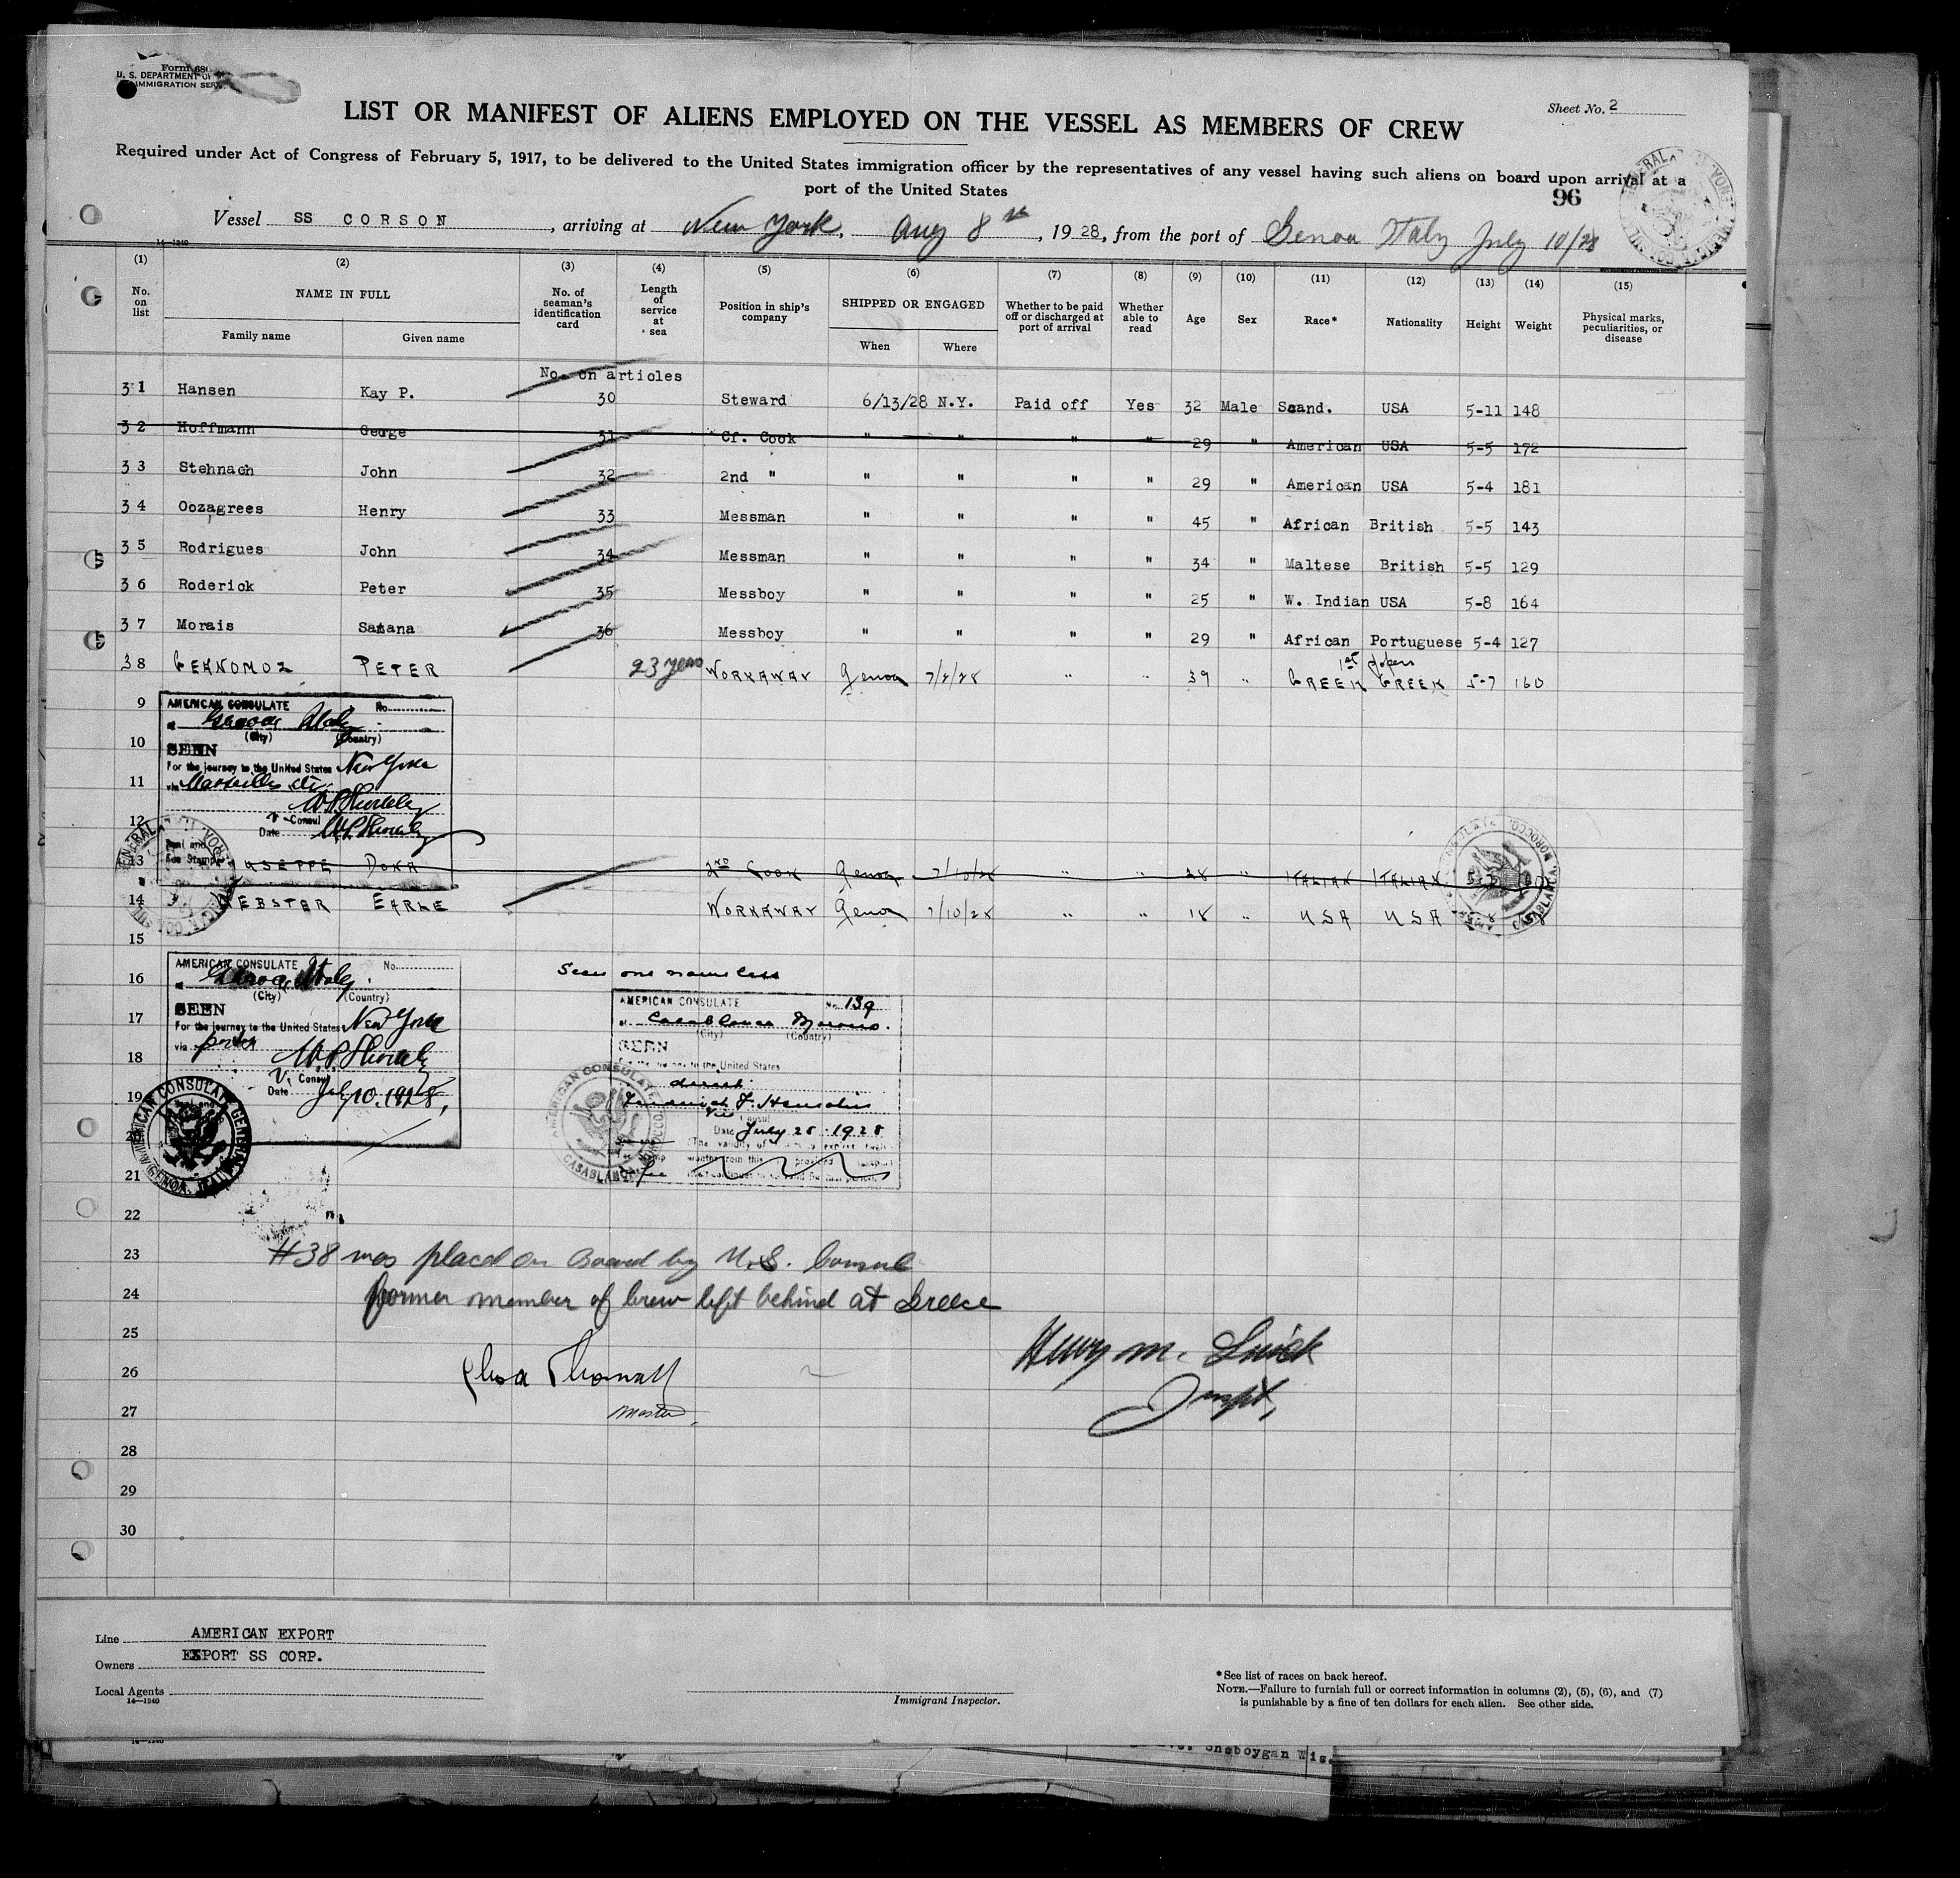 Form 680
U. S. DEPARTMENT OF
IMMIGRATION SERV
Sheet No. 2
LIST OR MANIFEST OF ALIENS EMPLOYED ON THE VESSEL AS MEMBERS OF CREW
Required under Act of Congress of February 5, 1917, to be delivered to the United States immigration officer by the representatives of any vessel having such aliens on board upon arrival at a
port of the United States
96
Vessel SS CORSON, arriving at New York, Aug 8th, 1928, from the port of Genoa Italy July 10/28
14—1240
(1) (2) (3) (4) (5) (6) (7) (8) (9) (10) (11) (12) (13) (14) (15)
No. on list NAME IN FULL Family name Given name No. of seaman's identification card Length of service at sea Position in ship's company SHIPPED OR ENGAGED When Where Whether to be paid off or discharged at port of arrival Whether able to read Age Sex Race* Nationality Height Weight Physical marks, peculiarities, or disease
No. on articles
31 Hansen Kay P. 30 Steward 6/13/28 N.Y. Paid off Yes 32 Male Scand. USA 5-11 148
32 Hoffmann George 31 Cf. Cook " " " " 29 " American USA 5-5 172
33 Stehnach John 32 2nd " " " " " 29 " American USA 5-4 181
34 Oozagrees Henry 33 Messman " " " " 45 " African British 5-5 143
35 Rodrigues John 34 Messman " " " " 34 " Maltese British 5-5 129
36 Roderick Peter 35 Messboy " " " " 25 " W. Indian USA 5-8 164
37 Morais Satana 36 Messboy " " " " 29 " African Portuguese 5-4 127
1st papers
38 PETER 23 years WORKAWAY Genoa 7/2/28 " " 39 " GREEK GREEK 5-7 160
9
AMERICAN CONSULATE No.
at Genoa Italy
(City) (Country)
10
SEEN
For the journey to the United States New York
11
via Marseilles etc
12
V Consul
Date
Seal and
Fee Stamp
13 USEPPE DOKA 2ND COOK Genoa 7/10/28 " " 28 " ITALIAN ITALIAN
14 WEBSTER EARLE WORKAWAY Genoa 7/10/28 " " 18 " USA USA
15
16
AMERICAN CONSULATE No.
at Genoa Italy
(City) (Country)
SEEN
For the journey to the United States New York
via
V. Consul
Date July 10. 1928.
AMERICAN CONSULATE GENERAL
GENOA, ITALY
Seen one name less
AMERICAN CONSULATE No. 139
at Casablanca Morocco.
(City) (Country)
SEEN
For the journey to the United States
direct
Consul
Date July 28 1928
AMERICAN CONSULATE
CASABLANCA, MOROCCO
17
18
19
20
21
22
23
#38 was placed on board by U.S. Consul
24
former member of crew left behind at Greece
25
Henry M.
26
27
Master.
Inspt.
28
29
30
Line AMERICAN EXPORT
Owners EXPORT SS CORP.
Local Agents
14—1240
Immigrant Inspector.
*See list of races on back hereof.
NOTE.—Failure to furnish full or correct information in columns (2), (5), (6), and (7)
is punishable by a fine of ten dollars for each alien. See other side.
Sheboygan Wis.